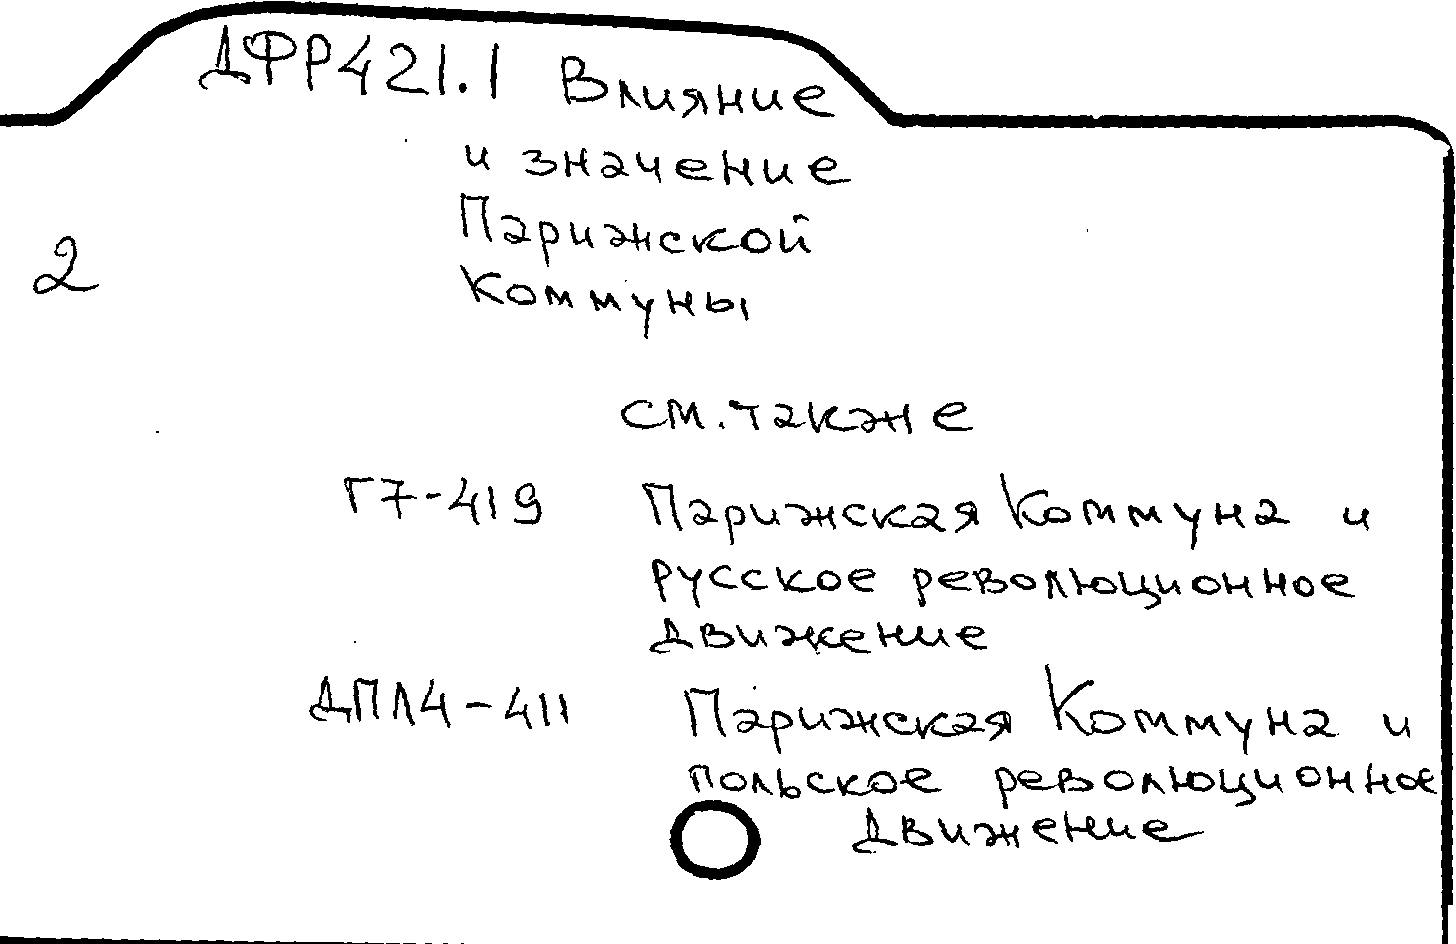 ДФР421.1 Влияние
и значение
Парижской
2
Коммуны
см. также
Г7-419 Парижская Коммуна и
русское революционное
движение
ДПЛ4-411 Парижская Коммуна и
польское революционное
движение